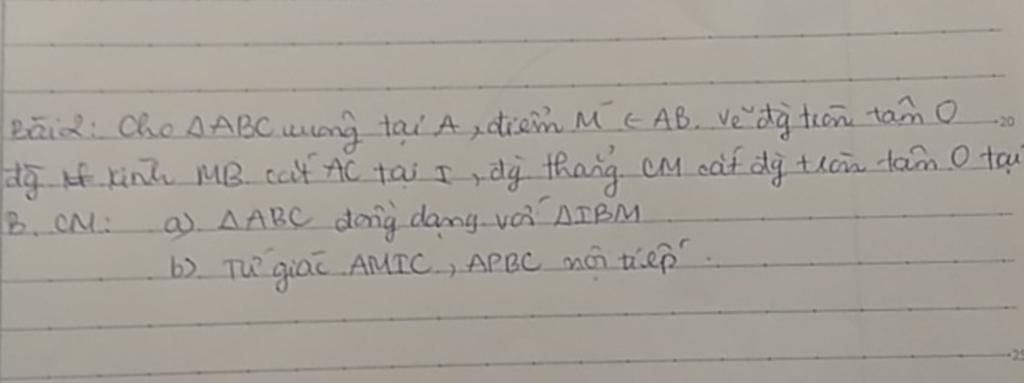 Bài 2: Cho ΔABC vuông tại A, điểm M ∈ AB. Vẽ đg tròn tâm O 20
đg kính MB cắt AC tại I, đg thẳng CM cắt đg tròn tâm O tại
B. CM: a) ΔABC đồng dạng với ΔIBM
b) Tứ giác AMIC, APBC nội tiếp.
25